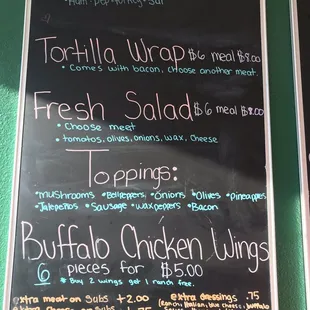 Tortilla Wrap $6 meal $8.00
• Comes with bacon, choose another meat.
Fresh Salad $6 meal $8.00
• Choose meet
• tomatos, olives, onions, wax, cheese
Toppings:
•mushrooms •Bellpeppers •Onions •Olives •pineapples
•Jalepeños •Sausage •waxpeppers •Bacon
Buffalo Chicken Wings
6 pieces for $5.00
* Buy 2 wings get 1 ranch free.
extra meat on Subs +2.00
extra dressings .75